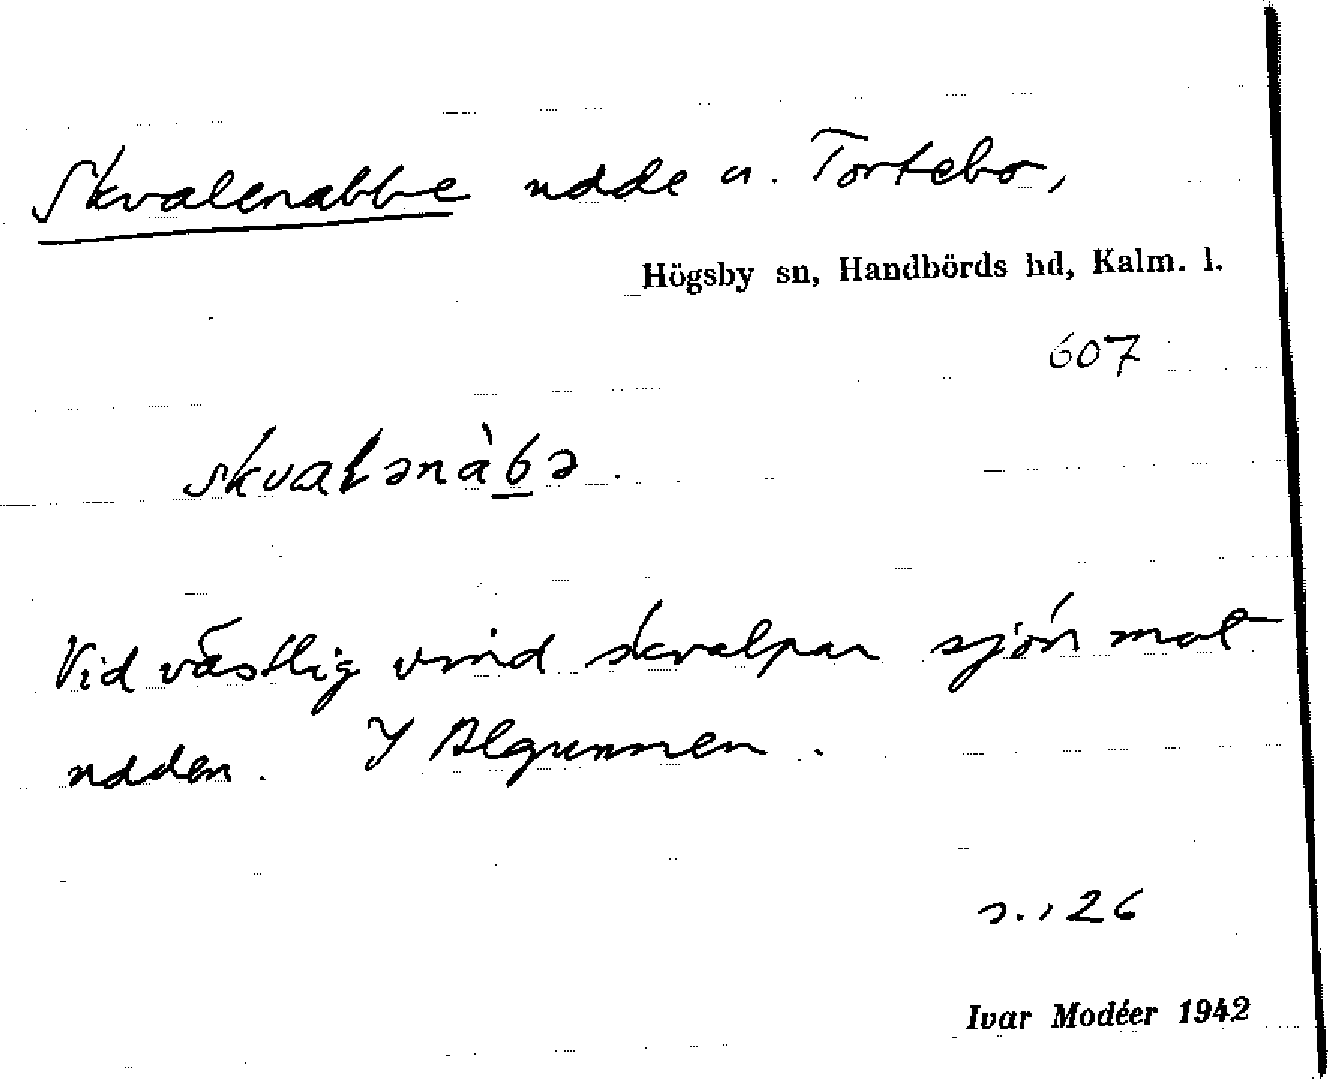 Skvalenabbe udde a. Tortebo,
Högsby sn, Handbörds hd, Kalm. l.
607
skvaƚənàb̲ə.
Vid västlig vind skvalpar sjön mot
udden. I Algunnen.
s. 126
Ivar Modéer 1942